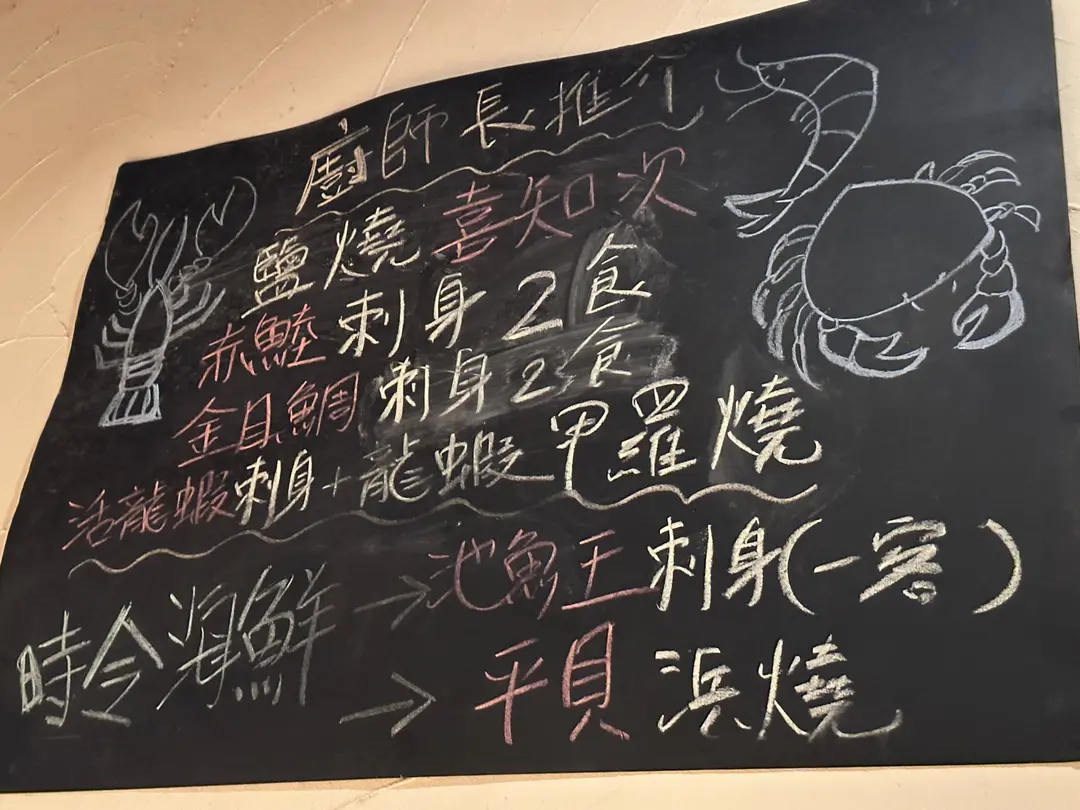 廚師長推介
鹽燒喜知次
赤鯥刺身2食
金目鯛刺身2食
活龍蝦刺身+龍蝦甲羅燒
時令海鮮→池魚王刺身(一客)
→平貝浜燒